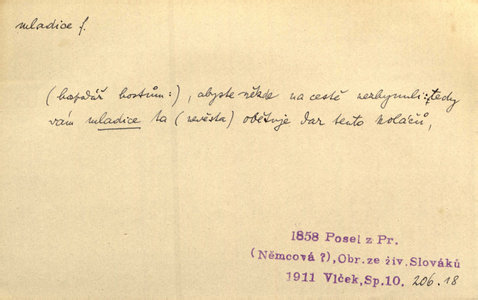 mladice f.
(kopáč hostům:), abyste někde na cestě nezhynuli: tedy
vám mladice ta (nevěsta) obětuje dar tento koláčů,
1858 Posel z Pr.
(Němcová ?), Obr. ze živ. Slováků
1911 Vlček, Sp. 10. 206.18